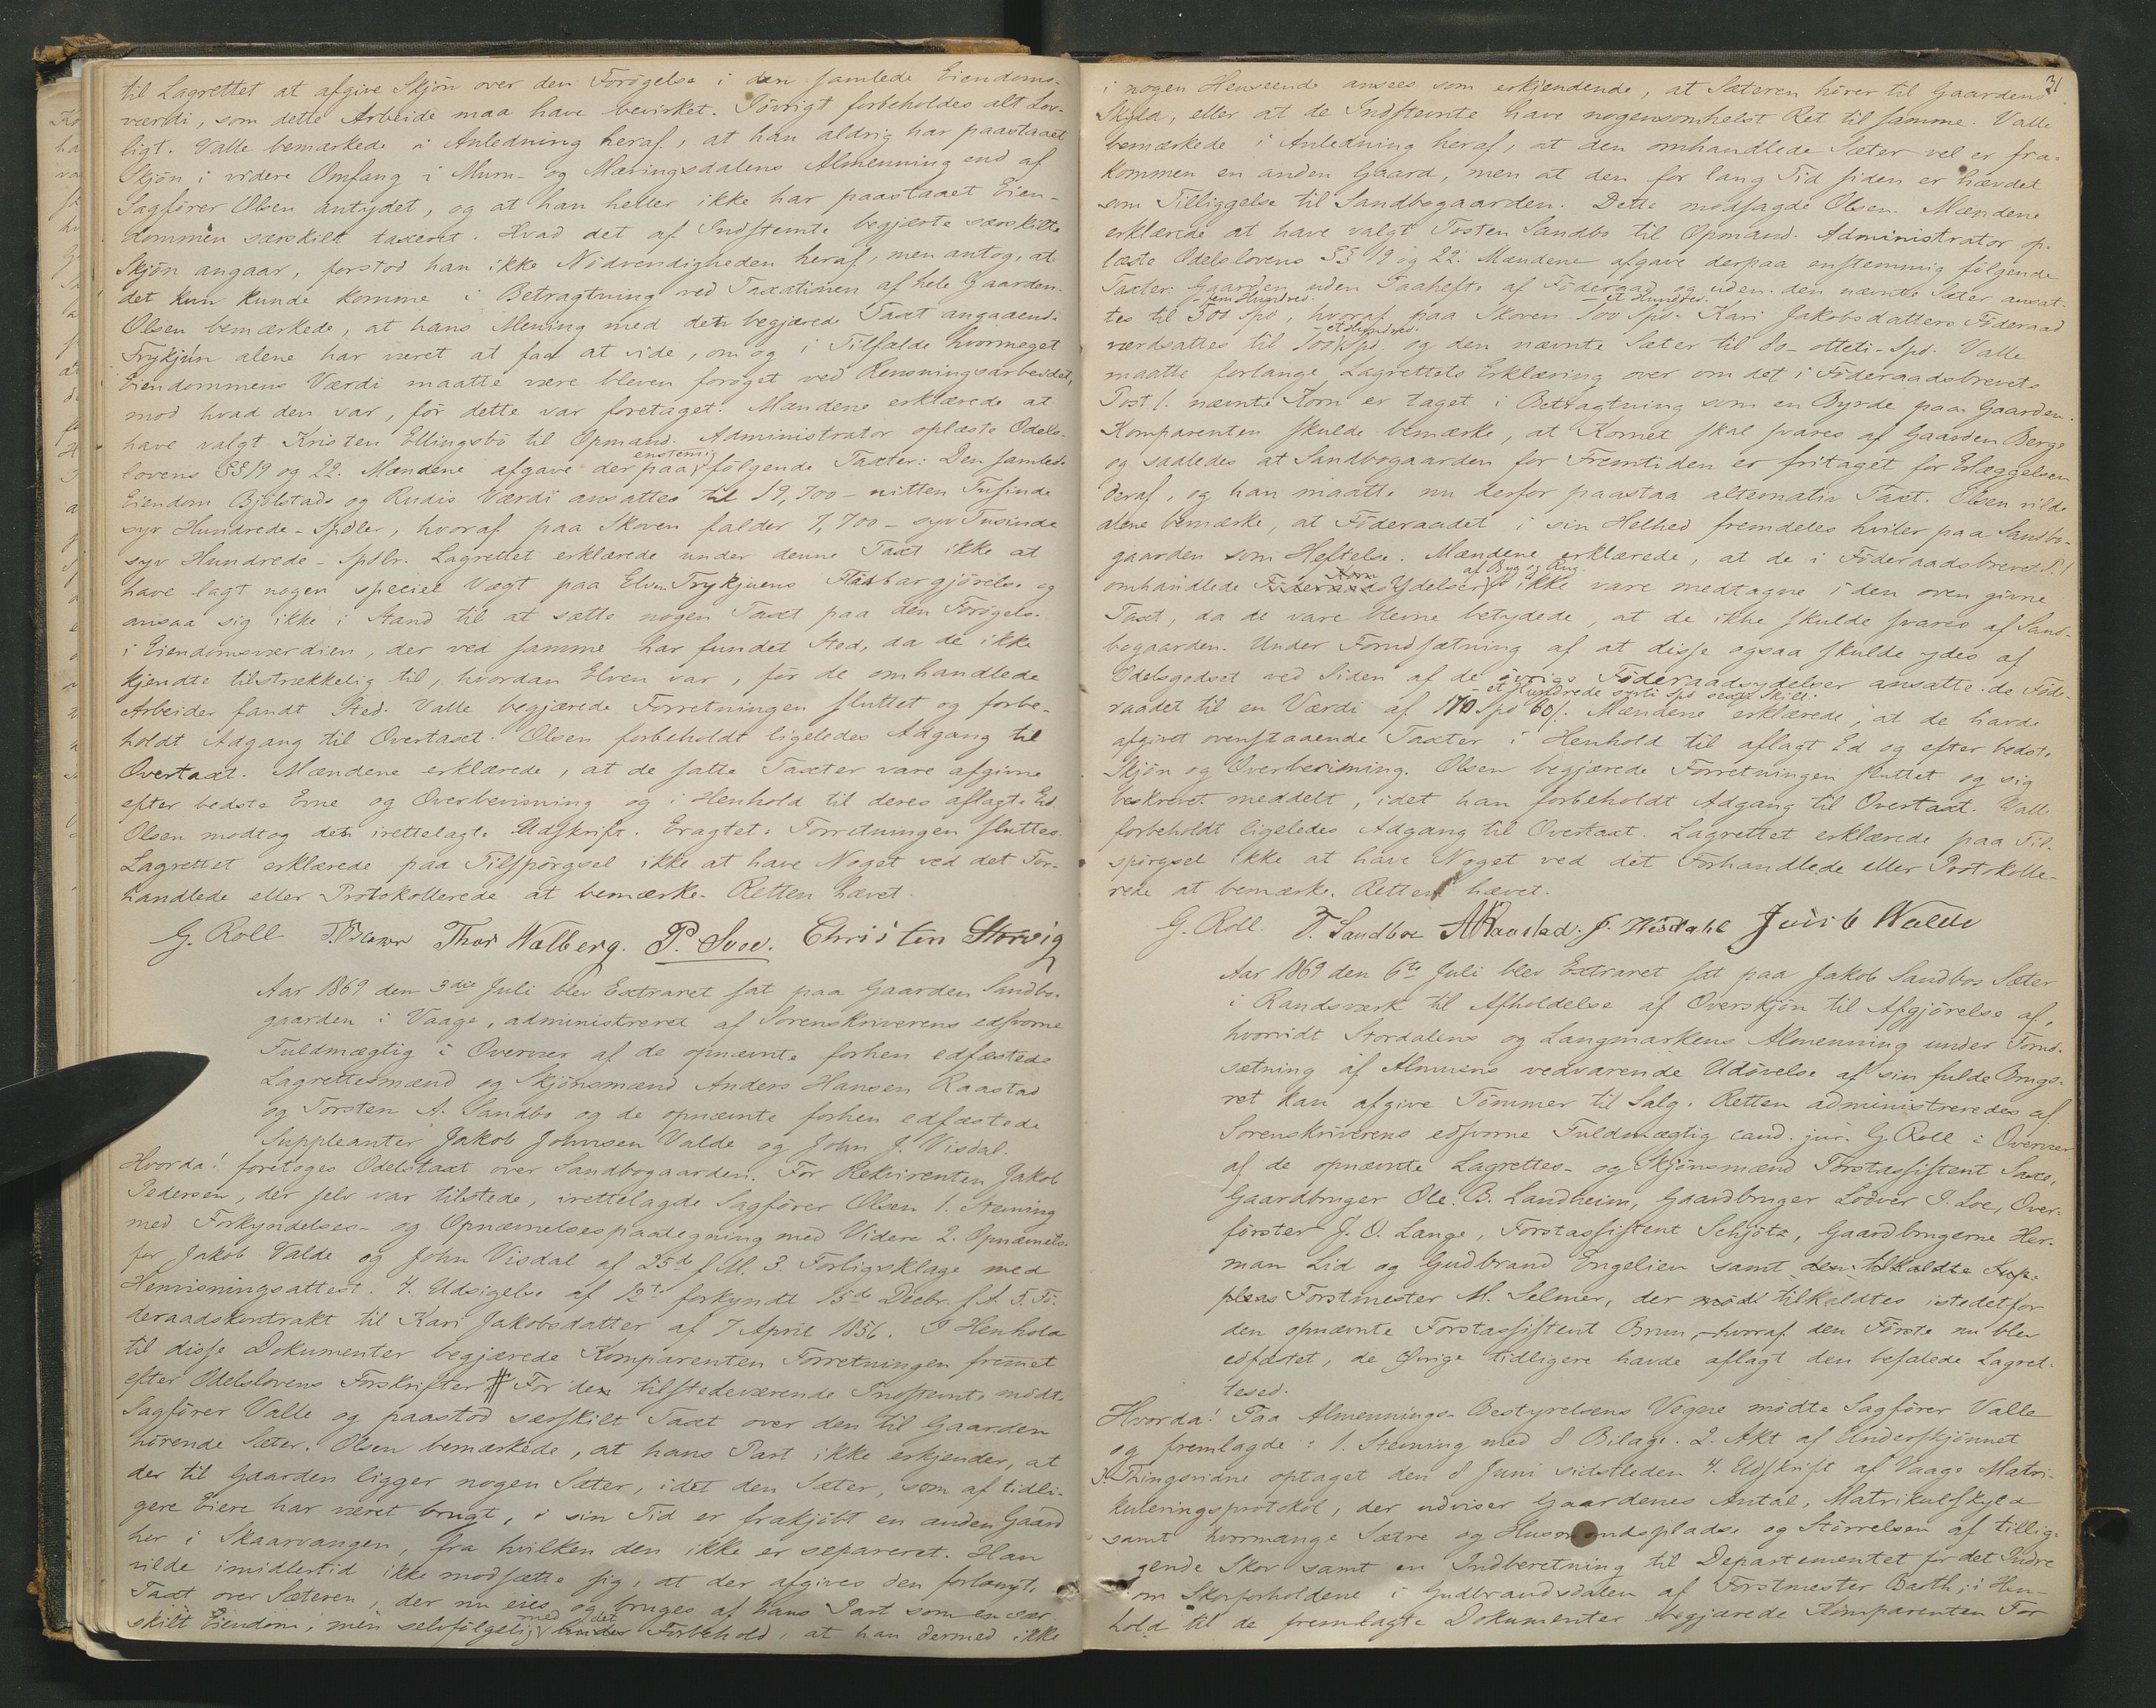 til Lagrettet at afgive Skjön over den Forögelse i den samlede Eiendoms-
værdi, som dette Arbeide maa have bevirket. Iövrigt forbeholdes alt Lov-
ligt. Valle bemærkede i Anledning heraf, at han aldrig har paastaaet
Skjön i videre Omfang i Murn- og Mæringsdalens Almenning end af
Sagförer Olsen antydet, og at han heller ikke har paastaaet Eien-
dommen særskilt taxeret. Hvad det af Indstemte begjærte særskilte
Skjön angaar, forstod han ikke Nödvendigheden heraf, men antog, at
det kun kunde komme i Betragtning ved Taxationen af hele Gaarden.
Olsen bemærkede, at hans Mening med den begjærede Taxt angaaende
Trykjun alene har været at faa at vide, om og i Tilfælde hvormeget
Eiendommens Værdi maatte være bleven foröget ved Rensningsarbeidet,
mod hvad den var, för dette var foretaget. Mændene erklærede at
have valgt Kristen Ellingsbö til Opmand. Administrator oplæste Odels-
lovens §§ 19 og 22. Mændene afgave derpaa enstemig fölgende Taxter: Den samlede
Eiendom Bjölstads og Rudis Værdi ansattes til 19,700 – nitten Tusinde
syv Hundrede – Spdlr, hvoraf paa Skoven falder 7,700 – syv Tusinde
syv Hundrede – Spdlr. Lagrettet erklærede under denne Taxt ikke at
have lagt nogen speciel Vægt paa Elven Trykjuens Flötbargjörelse og
ansaa sig ikke i Stand til at sætte nogen Taxt paa den Forögelse
i Eiendomsværdien, der ved samme har fundet Sted, da de ikke
kjendte tilstrækkelig til, hvordan Elven var, för de omhandlede
Arbeider fandt Sted. Valle begjærede Forretningen sluttet og forbe-
holdt Adgang til Overtaxt. Olsen forbeholdt ligeledes Adgang til
Overtaxt. Mændene erklærede, at de satte Taxter vare afgivne
efter bedste Evne og Overbevisning og i Henhold til deres aflagte Ed.
Olsen modtog det irettelagte Udskrift. Eragtet: Forretningen sluttes.
Lagrettet erklærede paa Tilspörgsel ikke at have Noget ved det For-
handlede eller Protokollerede at bemærke. Retten hævet.
G. Roll Thor Walberg. P. Svee. Christen Storvig
Aar 1869 den 3die Juli blev Extraret sat paa Gaarden Sandbo-
gaarden i Vaage, administreret af Sorenskriverens edsvorne
Fuldmægtig i Overvær af de opnævnte forhen edfæstede
Lagrettesmænd og Skjönsmænd Anders Hansen Raastad
og Torsten A. Sandbo og de opnævnte forhen edfæstede
Suppleanter Jakob Johnsen Valde og John J. Visdal.
Hvorda! foretoges Odelstaxt over Sandbogaarden. For Rekvirenten Jakob
Pedersen, der selv var tilstede, irettelagde Sagförer Olsen 1. Stevning
med Forkyndelses- og Opnævnelsespaategning med Videre 2. Opnævnelse
for Jakob Valde og John Visdal af 25de f. M. 3. Forligsklage med
Henvisningsattest. 4. Udsigelse af 12te forkyndt 15de Decbr. f. A. 5. Fö-
deraadskontrakt til Kari Jakobsdatter af 7 April 1856. I Henhold
til disse Dokumenter begjærede Komparenten Forretningen fremet
efter Odelslovens Forskrifter. For den tilstedeværende Indstevnte mödte
Sagförer Valle og paastod særskilt Taxt over den til Gaarden
hörende Sæter. Olsen bemærkede, at hans Part ikke erkjender, at
der til Gaarden ligger nogen Sæter, idet den Sæter, som af tidli-
gere Eiere har været brugt, i sin Tid er frakjöbt en anden Gaard
her i Skaarvangen, fra hvilken den ikke er separeret. Han
vilde imidlertid ikke modsætte sig, at der afgives den forlangte
Taxt over Sæteren, der nu eies og bruges af hans Part som en sær-
skilt Eiendom, men selvfölgelig med det Forbehold, at han dermed ikke
31
i nogen Henseende ansees som erkjendende, at Sæteren hörer til Gaardens
Skyld, eller at de Indstevnte have nogensomhelst Ret til samme. Valle
bemærkede i Anledning heraf, at den omhandlede Sæter vel er fra-
kommen en anden Gaard, men at den for lang Tid siden er hævdet
som Tilliggelse til Sandbogaarden. Dette modsagde Olsen. Mændene
erklærede at have valgt Tosten Sandbo til Opmand. Administrator op-
læste Odelslovens §§ 19 og 22. Mændene afgave derpaa enstemmig fölgende
Taxter: Gaarden uden Paahefte af Föderaad og uden den nævnte Sæter ansat-
tes til 500 – fem Hundred. Spd, hvoraf paa Skoven 100 – et Hundred. Spd. Kari Jakobsdatters Föderaad
værdsattes til 100 – et Hundred. Spd. og den nævnte Sæter til 80 – otteti – Spd. Valle
maatte forlange Lagrettets Erklæring over om det i Föderaadsbrevets
Post 1. nævnte Korn er taget i Betragtning som en Byrde paa Gaarden.
Komparenten skulde bemærke, at Kornet skal svares af Gaarden Berge
og saaledes at Sandbogaarden for Fremtiden er fritaget for Erlæggelsen
deraf, og han maatte nu derfor paastaa alternativ Taxt. Olsen vilde
alene bemærke, at Föderaadet i sin Helhed fremdeles hviler paa Sandbo-
gaarden som Heftelse. Mændene erklærede, at de i Föderaadsbrevet P. 1
omhandlede Korn Ydelser af Byg og Rug ikke vare medtagne i den oven givne
Taxt, da de vare blevne betydede, at de ikke skulde svares af Sand-
bogaarden. Under Forudsætning af at disse ogsaa skulde ydes af
Odelsgodset ved Siden af de övrige Föderaadsydelser ansatte de Föde-
raadet til en Værdi af 170 Spd 60 s. – et Hundrede sytti Spd sexti Skill. Mændene erklærede, at de havde
afgivet ovenstaaende Taxter i Henhold til aflagt Ed og efter bedste
Skjön og Overbevisning. Olsen begjærede Forretningen sluttet og sig
beskrevet meddelt, idet han forbeholdt Adgang til Overtaxt. Valle
forbeholdt ligeledes Adgang til Overtaxt. Lagrettet erklærede paa Til-
spörgsel ikke at have Noget ved det Forhandlede eller Protokolle-
rede at bemærke. Retten hævet.
G. Roll. T. Sandboe A H Raastad. J. Wisdahl Jacob Walde
Aar 1869 den 6te Juli blev Extraret sat paa Jakob Sandbos Sæter
i Randsværk til Afholdelse af Overskjön til Afgjörelse af,
hvorvidt Stordalens og Langmarkens Almenning under Forud-
sætning af Almuens vedvarende Udövelse af sin fulde Brugs-
ret kan afgive Tömmer til Salg. Retten administreredes af
Sorenskriverens edsvorne Fuldmægtig cand. jur. G. Roll i Overvær
af de opnævnte Lagrettes- og Skjönsmænd Forstassistent Saxe,
Gaardbruger Ole B. Landheim, Gaardbruger Lodver I. Loe, Over-
förster J. O. Lange, Forstassistent Schjötz, Gaardbrugerne Her-
man Lid og Gudbrand Engelien samt den tilkaldte Sup-
pleas Forstmester M. Selmer, der tilkaldtes istedetfor
den opnævnte Forstassistent Brun, – hvoraf den Förste nu blev
edfæstet, de Övrige tidligere havde aflagt den befalede Lagret-
tesed.
Hvorda! Paa Almennings-Bestyrelsens Vegne mödte Sagförer Valle
og fremlagde: 1. Stevning med 8 Bilage. 2. Akt af Underskjönnet
3. Thingsvidne optaget den 8 Juni sidstleden 4. Udskrift af Vaage Matri-
kuleringsprotokol, der udviser Gaardenes Antal, Matrikulskyld
samt hvormange Sætre og Husmandspladse og Störrelsen af tillig-
gende Skov samt en Indberetning til Departementet for det Indre
om Skovforholdene i Gudbrandsdalen af Forstmester Barth; i Hen-
hold til de fremlagte Dokumenter begjærede Komparenten For